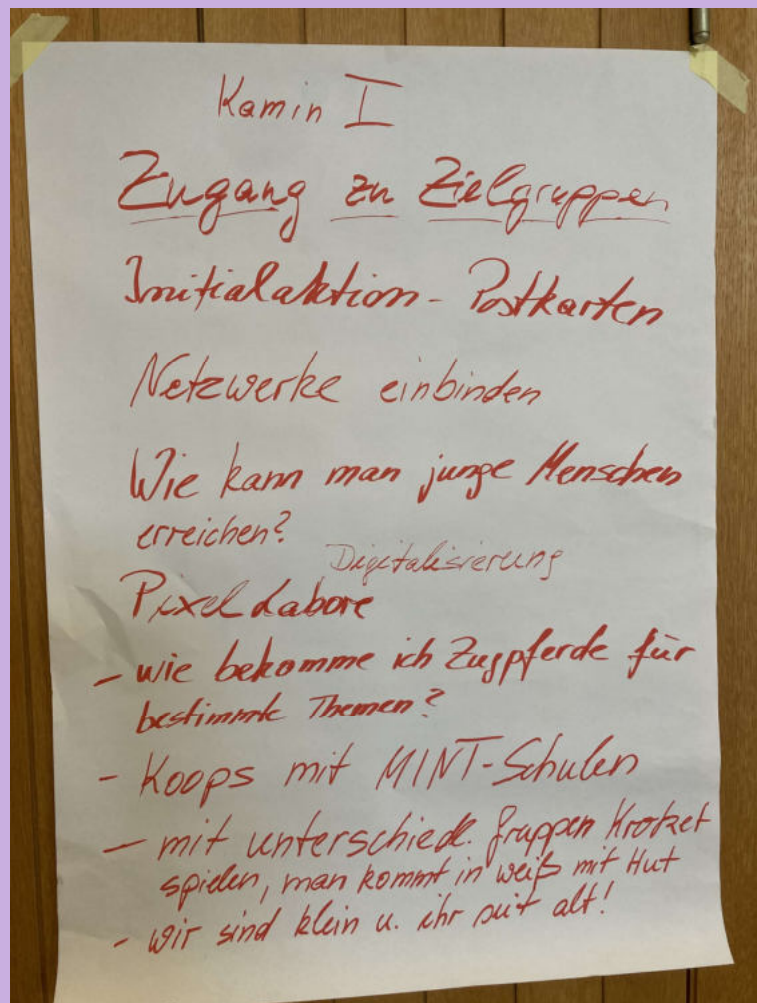 Kamin I
Zugang zu Zielgruppen
Initialaktion - Postkarten
Netzwerke einbinden
Wie kann man junge Menschen
erreichen?
Digitalisierung
PixelLabore
- wie bekomme ich Zugpferde für
bestimmte Themen?
- Koops mit MINT-Schulen
- mit unterschiedl. Gruppen Krocket
spielen, man kommt in weiß mit Hut
- wir sind klein u. ihr seit alt!